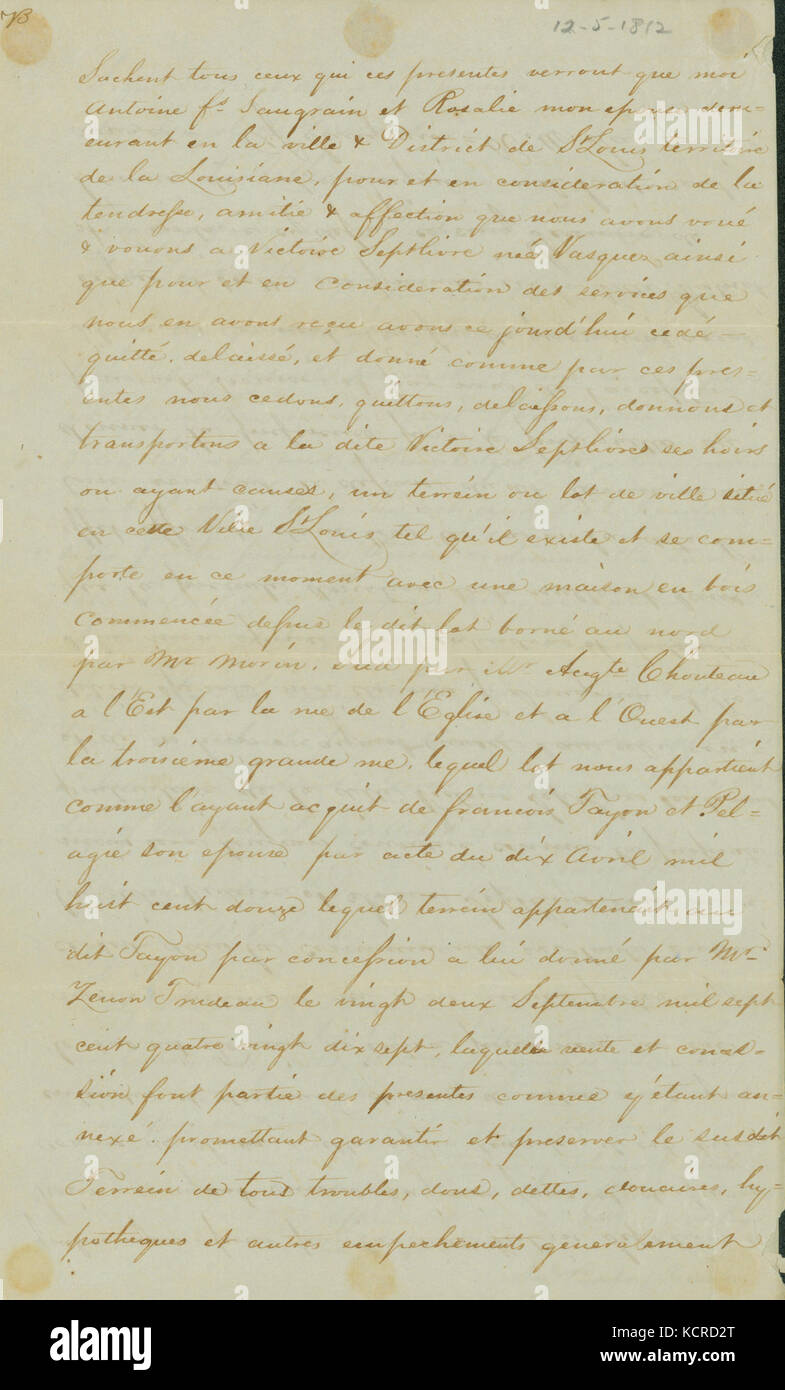 B
12-5-1812
Sachent tous ceux qui ces presentes verront que moi
Antoine fs. Saugrain et Rosalie mon epouse dem=
eurant en la ville & District de St Louis territoire
de la Louisiane, pour et en consideration de la
tendresse, amitié & affection que nous avons voué
& vouons a Victoire Septlivre née Vasquez ainsi
que pour et en Consideration des services que
nous en avons reçu avons ce jourd'hui cedé -
quitté, delaissé, et donné comme par ces pres=
entes nous cedons, quittons, delaissons, donnons et
transportons a la dite Victoire Septlivres ses hoirs
ou ayant causes, un terrein ou lot de ville situé
en cette Ville St Louis tel qu'il existe et se com=
porte en ce moment avec une maison en bois
Commencée dessus le dit lot borné au nord
par Mr Morin, Sud par Mr Augte Chouteau
a l'Est par la rue de l'Eglise et a l'Ouest par
la troisieme grande rue, lequel lot nous appartient
comme l'ayant acquit de francois Tayon et Pel=
agie son epouse par acte du dix Avril mil
huit cent douze lequel terrein appartenait au
dit Tayon par concession a lui donné par Mr
Zenon Trudeau le vingt deux Septembre mil sept
cent quatre vingt dix sept, laquelle vente et conces=
sion font partie des presentes comme y étant an=
nexé. promettant garantir et preserver le susdit
Terrein de tous troubles, dons, dettes, douaires, hy=
potheques et autres empechements generalement
alamy
Image ID: KCRD2T
www.alamy.com